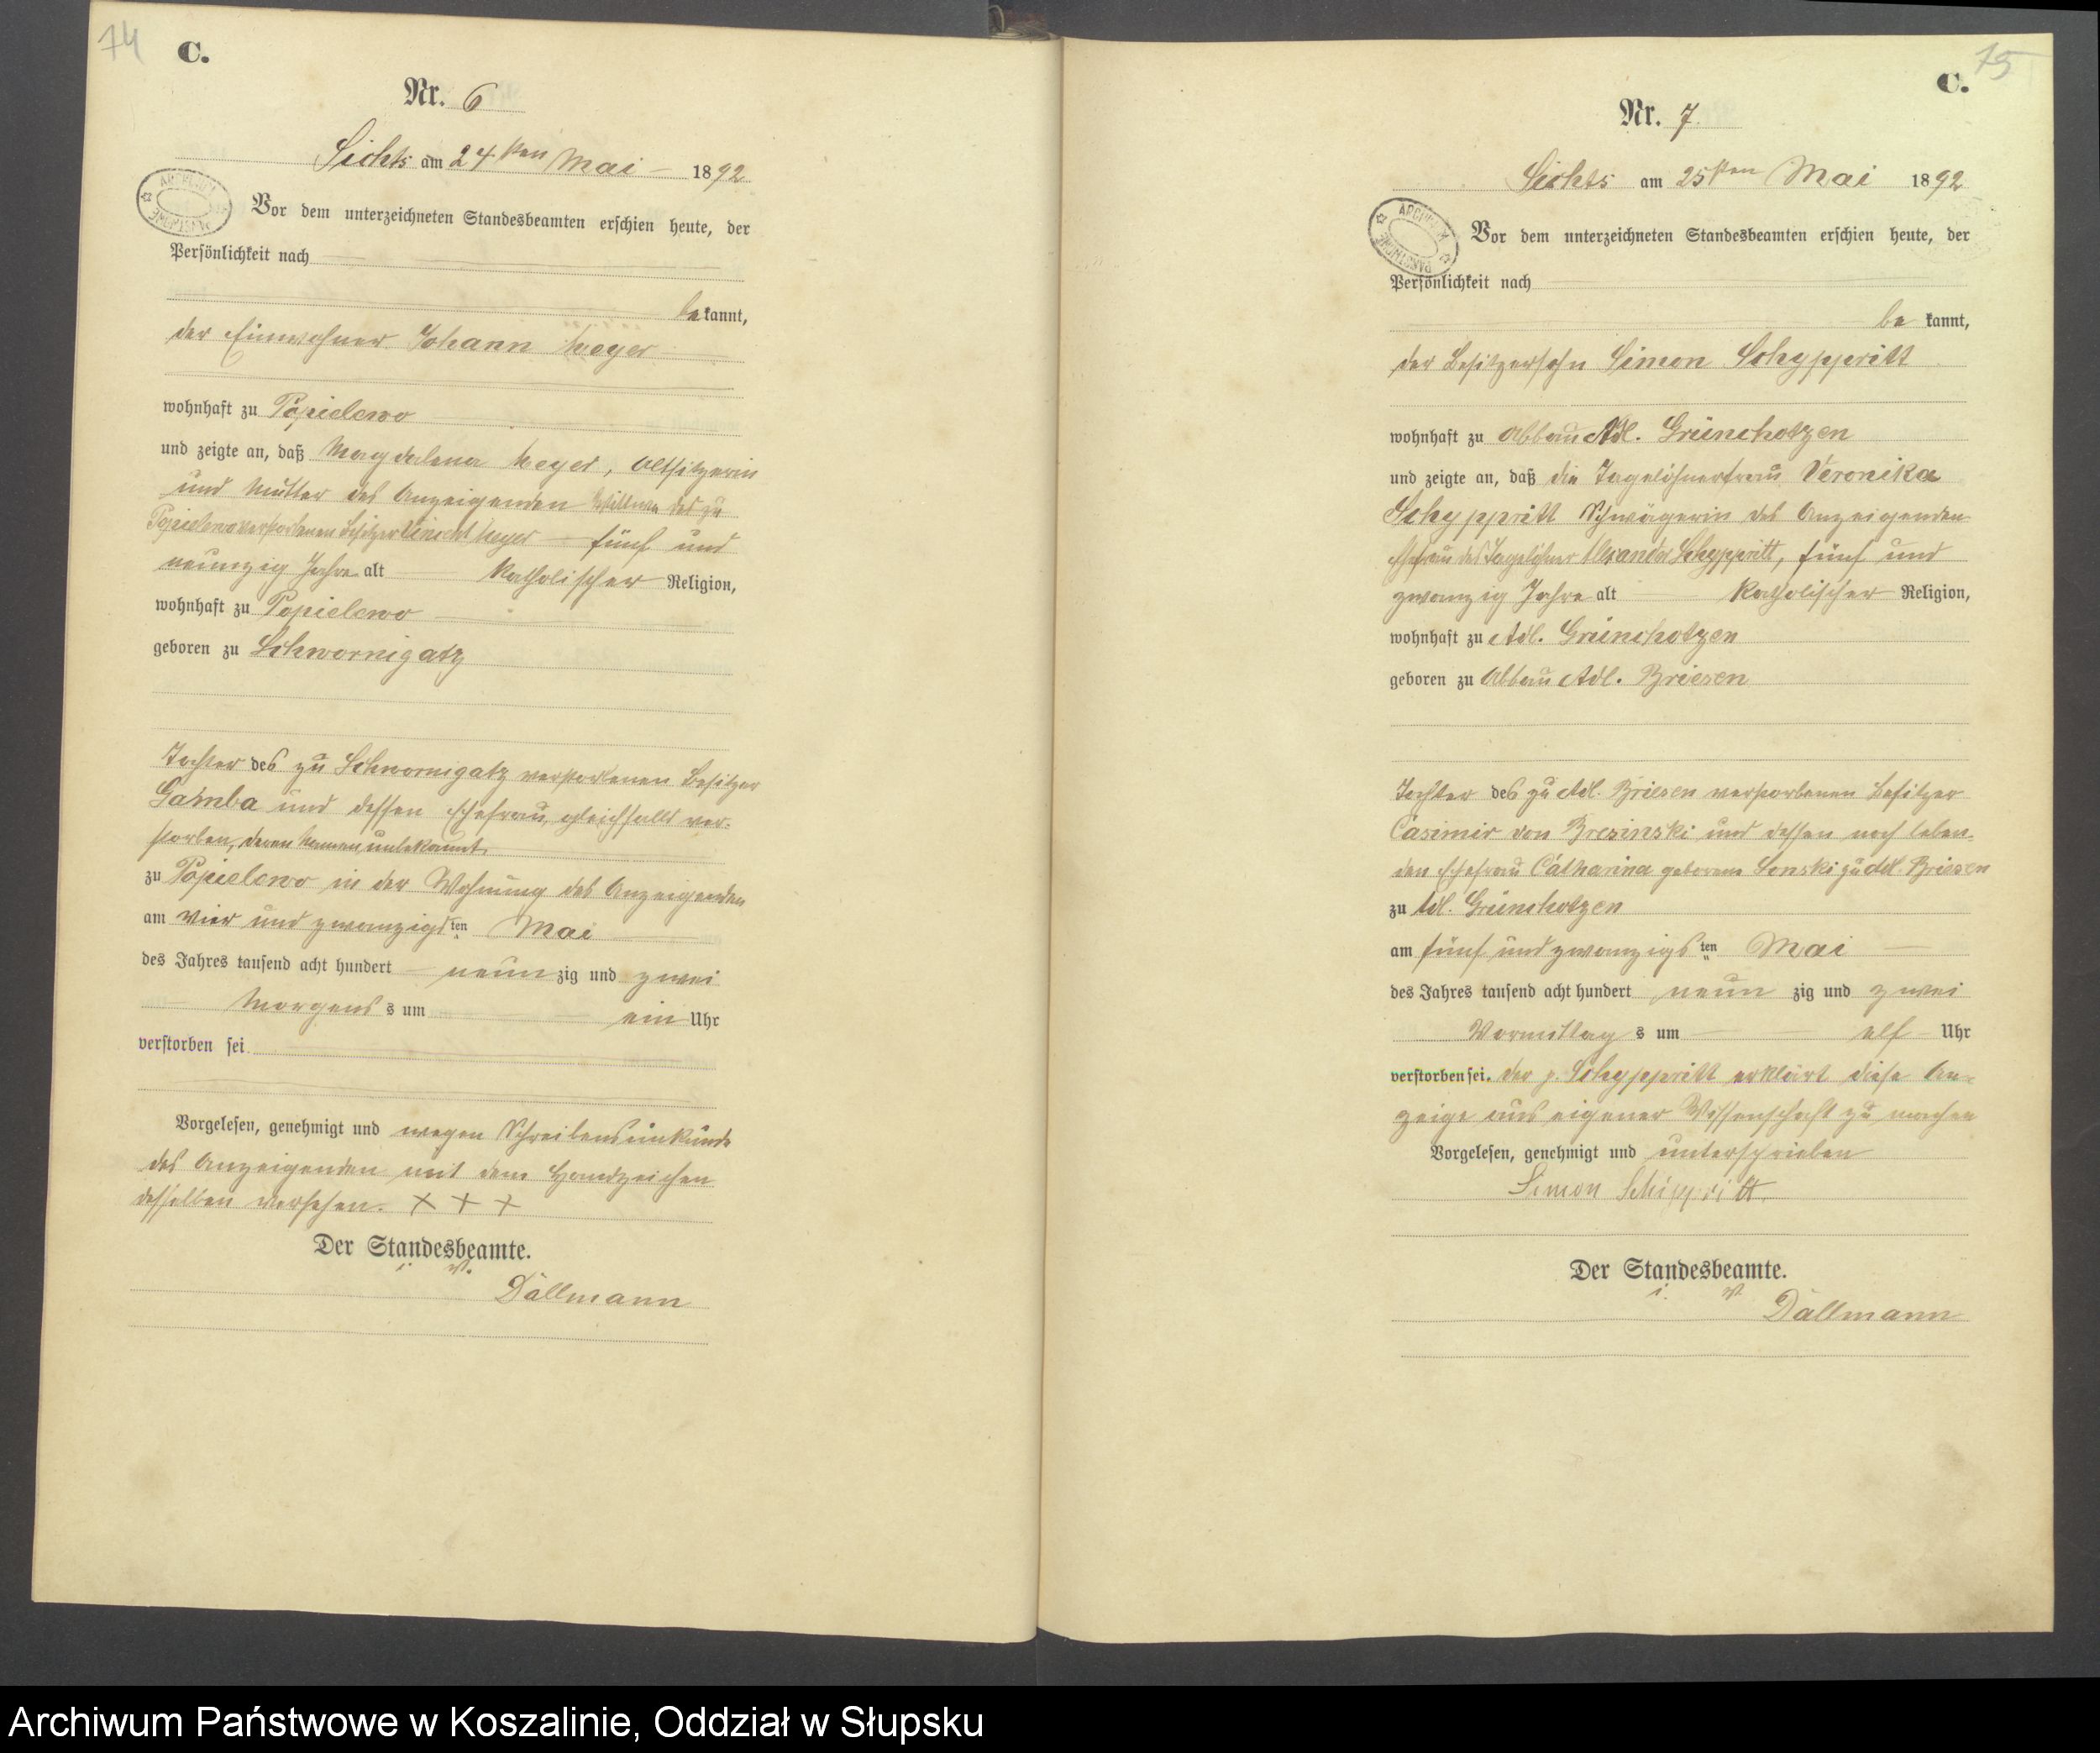 74
C.
Nr. 6
Sichts am 24ten Mai 1892
Vor dem unterzeichneten Standesbeamten erschien heute, der
Persönlichkeit nach
bekannt,
der Einwohner Johann Meyer
wohnhaft zu Popielewo
und zeigte an, daß Magdalena Meyer, Altsitzerin
und Mutter des Anzeigenden Wittwe des zu
Popielewo verstorbenen Besitzer Meyer fünf und
neunzig Jahre alt katholischer Religion,
wohnhaft zu Popielewo
geboren zu Schwornigatz
Tochter des zu Schwornigatz verstorbenen Besitzer
Gamba und dessen Ehefrau, gleichfalls ver-
storben, deren Namen unbekannt,
zu Popielewo in der Wohnung des Anzeigenden
am vier und zwanzigsten Mai
des Jahres tausend acht hundert neunzig und zwei
Morgens um ein Uhr
verstorben sei
Vorgelesen, genehmigt und wegen Schreibensunkunde
des Anzeigenden mit dem Handzeichen
desselben versehen. + + +
Der Standesbeamte.
i. V.
Dallmann
75
C.
Nr. 7
Sichts am 25ten Mai 1892
Vor dem unterzeichneten Standesbeamten erschien heute, der
Persönlichkeit nach
bekannt,
der Besitzersohn Simon Schyppritt
wohnhaft zu Abbau Adl. Grünchotzen
und zeigte an, daß die Tagelöhnerfrau Veronika
Schyppritt Schwägerin des Anzeigenden
Ehefrau des Tagelöhner Alexander Schyppritt, fünf und
zwanzig Jahre alt katholischer Religion,
wohnhaft zu Adl. Grünchotzen
geboren zu Abbau Adl. Briesen
Tochter des zu Adl. Briesen verstorbenen Besitzer
Casimir von Brezinski und dessen noch leben-
den Ehefrau Catharina geborene Lonski zu Adl. Briesen
zu Adl. Grünchotzen
am fünf und zwanzigsten Mai
des Jahres tausend acht hundert neunzig und zwei
Vormittags um elf Uhr
verstorben sei. der p. Schyppritt erklärt diese An-
zeige aus eigener Wissenschaft zu machen
Vorgelesen, genehmigt und unterschrieben
Simon Schippritt
Der Standesbeamte.
i. V.
Dallmann
Archiwum Państwowe w Koszalinie, Oddział w Słupsku